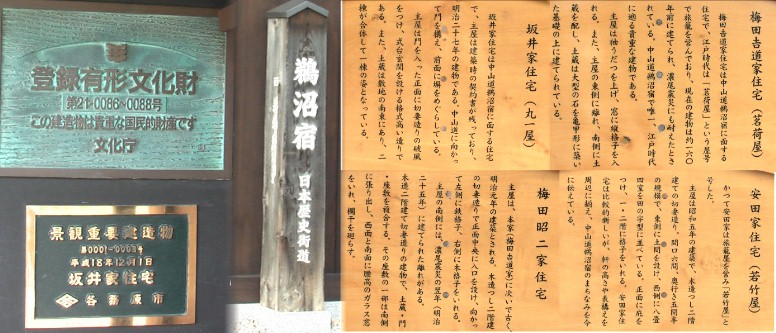 登録有形文化財
第21-0086~0088号
この建造物は貴重な国民的財産です
文化庁
景観重要建造物
第0001-0003号
平成18年12月1日
坂井家住宅
各務原市
鵜沼宿
日本歴史街道
梅田吉道家住宅(茗荷屋)
梅田吉道家住宅は中山道鵜沼宿に面する
住宅で、江戸時代は「茗荷屋」という屋号
で旅籠を営んでおり、現在の建物は約一六〇
年前に建てられ、濃尾震災にも耐えたとさ
れている。中山道鵜沼宿で唯一、江戸時代
に遡る貴重な建物である。
主屋は袖うだつを上げ、窓に縦格子を入
れる。また、主屋の東側に離れ、南側に土
蔵を配し、土蔵は大型の石を亀甲形に築い
た基礎の上に建てられている。
坂井家住宅(丸一屋)
坂井家住宅は中山道鵜沼宿に面する住宅
で、主屋は建築時の契約書が残っており、
明治二十七年の建物である。中山道に向かっ
て門を構え、前面に塀をめぐらしている。
主屋は門を入った正面に切妻造りの破風
をつけ、式台玄関を設ける格式高い造りで
ある。また、土蔵は敷地の南東にあり、二
棟が合体して一棟の姿となっている。
安田家住宅(若竹屋)
かつて安田家は旅籠屋を営み「若竹屋」と
号した。
主屋は昭和五年の建築で、木造つし二階
建ての切妻造り、間口六間、奥行き五間半
の規模で、東側に土間を設け、西側に八畳
四室を田の字型に並べている。正面に庇を
つけ、一・二階に格子をいれる。安田家住
宅は比較的新しいが、軒の高さや表構えを
周辺に揃え、中山道鵜沼宿のまちなみを今
に伝えている。
梅田昭二家住宅
主屋は、本家(梅田吉道家)に次いで古く、
明治元年の建築とされる。木造つし二階建
の切妻造りで正面中央に入口を設け、向かっ
て左側に鉄格子、右側に木格子をいれる。
主屋の南側には、濃尾震災の翌年(明治
二十五年)に建てられた離れがある。
木造二階建て切妻造りの建物で、土蔵・門
・座敷を複合する。その座敷の一部は南側
に張り出し、西面と南面に腰高のガラス窓
をいれ、欄干を廻らす。